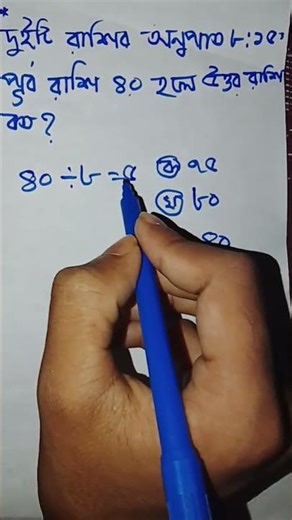 দুইটি রাশির অনুপাত ৮:১৫,
পূর্ব রাশি ৪০ হলে উত্তর রাশি
কত?
৪০ ÷ ৮ = ৫
ক ৭৫
খ ৮০